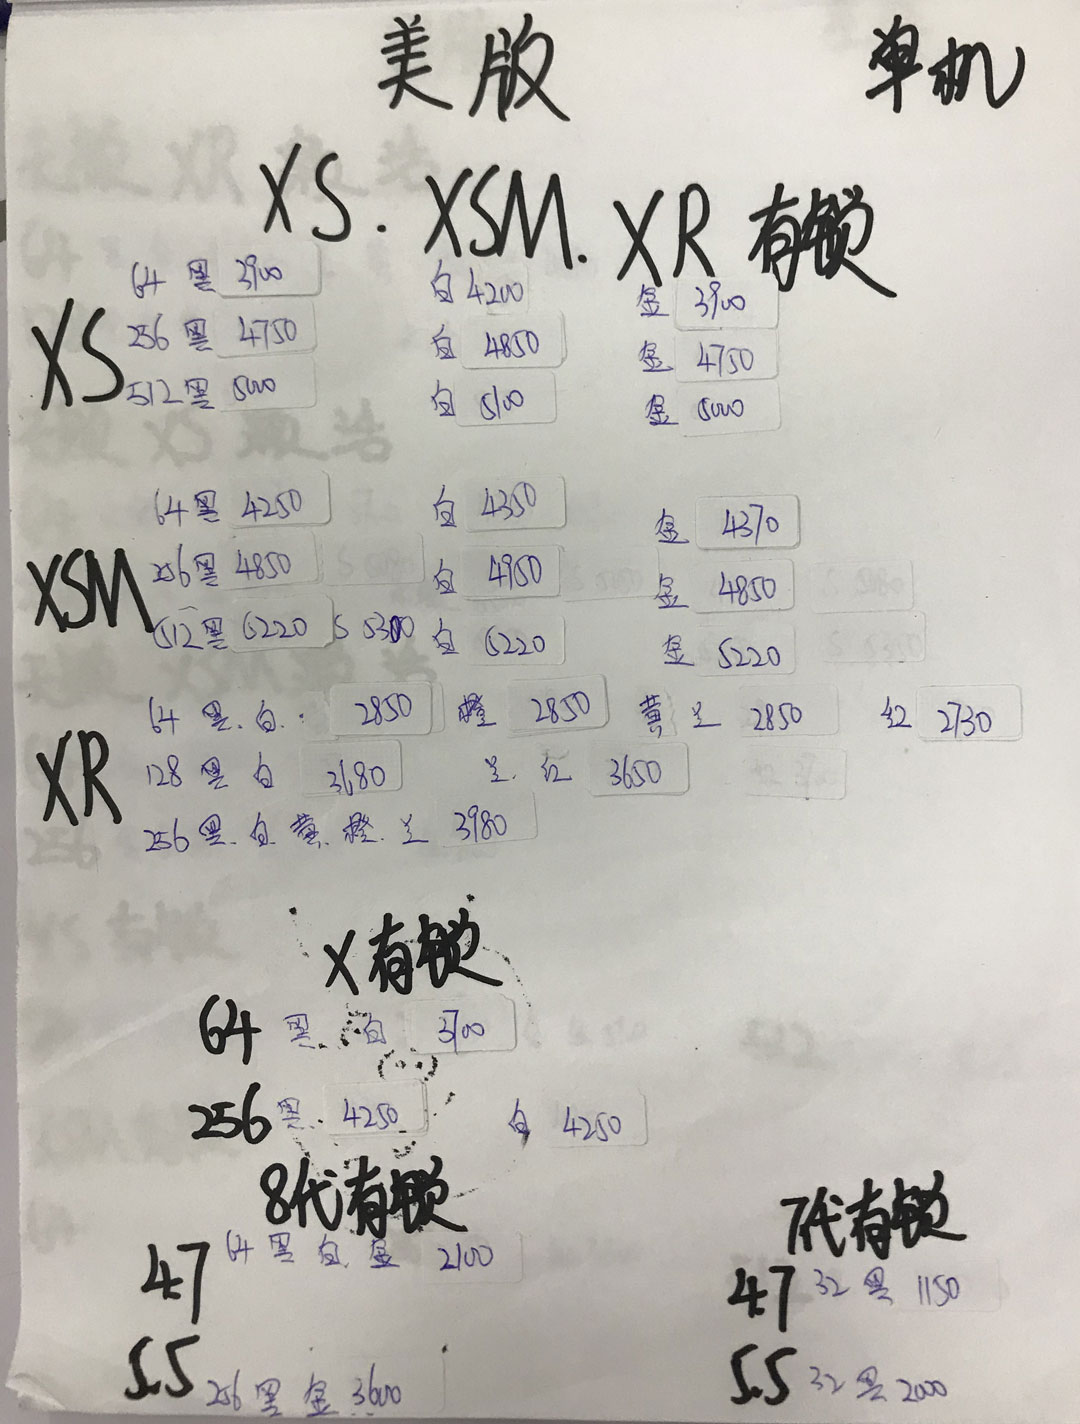 美版 单机
XS. XSM. XR 有锁
XS
64 黑 3900 白 4200 金 3900
256 黑 4750 白 4850 金 4750
512 黑 5000 白 5100 金 5000
XSM
64 黑 4250 白 4350 金 4370
256 黑 4850 白 4950 金 4850
512 黑 5220 S 5300 白 5220 金 5220
XR
64 黑.白. 2850 橙 2850 黄 兰 2850 红 2730
128 黑 白 3680 兰.红 3650
256 黑.白.黄.橙.兰 3980
X有锁
64 黑. 白 3700
256 黑. 4250 白 4250
8代有锁
47 64 黑 白 金 2100
5.5 256 黑 金 3600
7代有锁
47 32 黑 1150
5.5 32 黑 2000